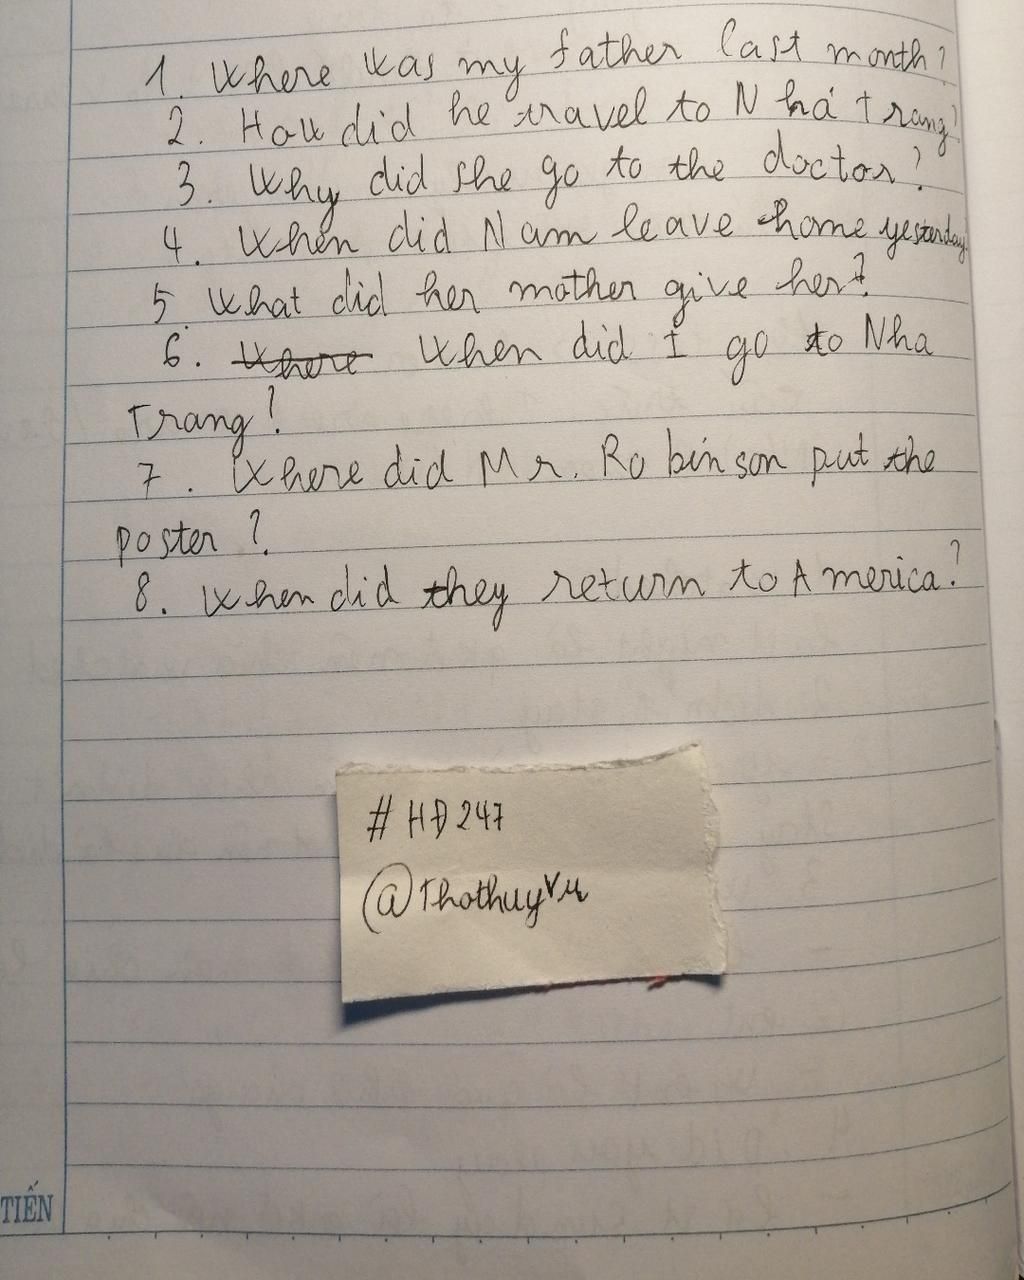 1. Where was my father last month?
2. How did he travel to Nhá Trang?
3. Why did she go to the doctor?
4. When did Nam leave home yesterday?
5. What did her mother give her?
6. Where When did I go to Nha
Trang?
7. Where did Mr. Robinson put the
poster?
8. When did they return to America?
#HĐ247
@Thothuyvu
TIẾN